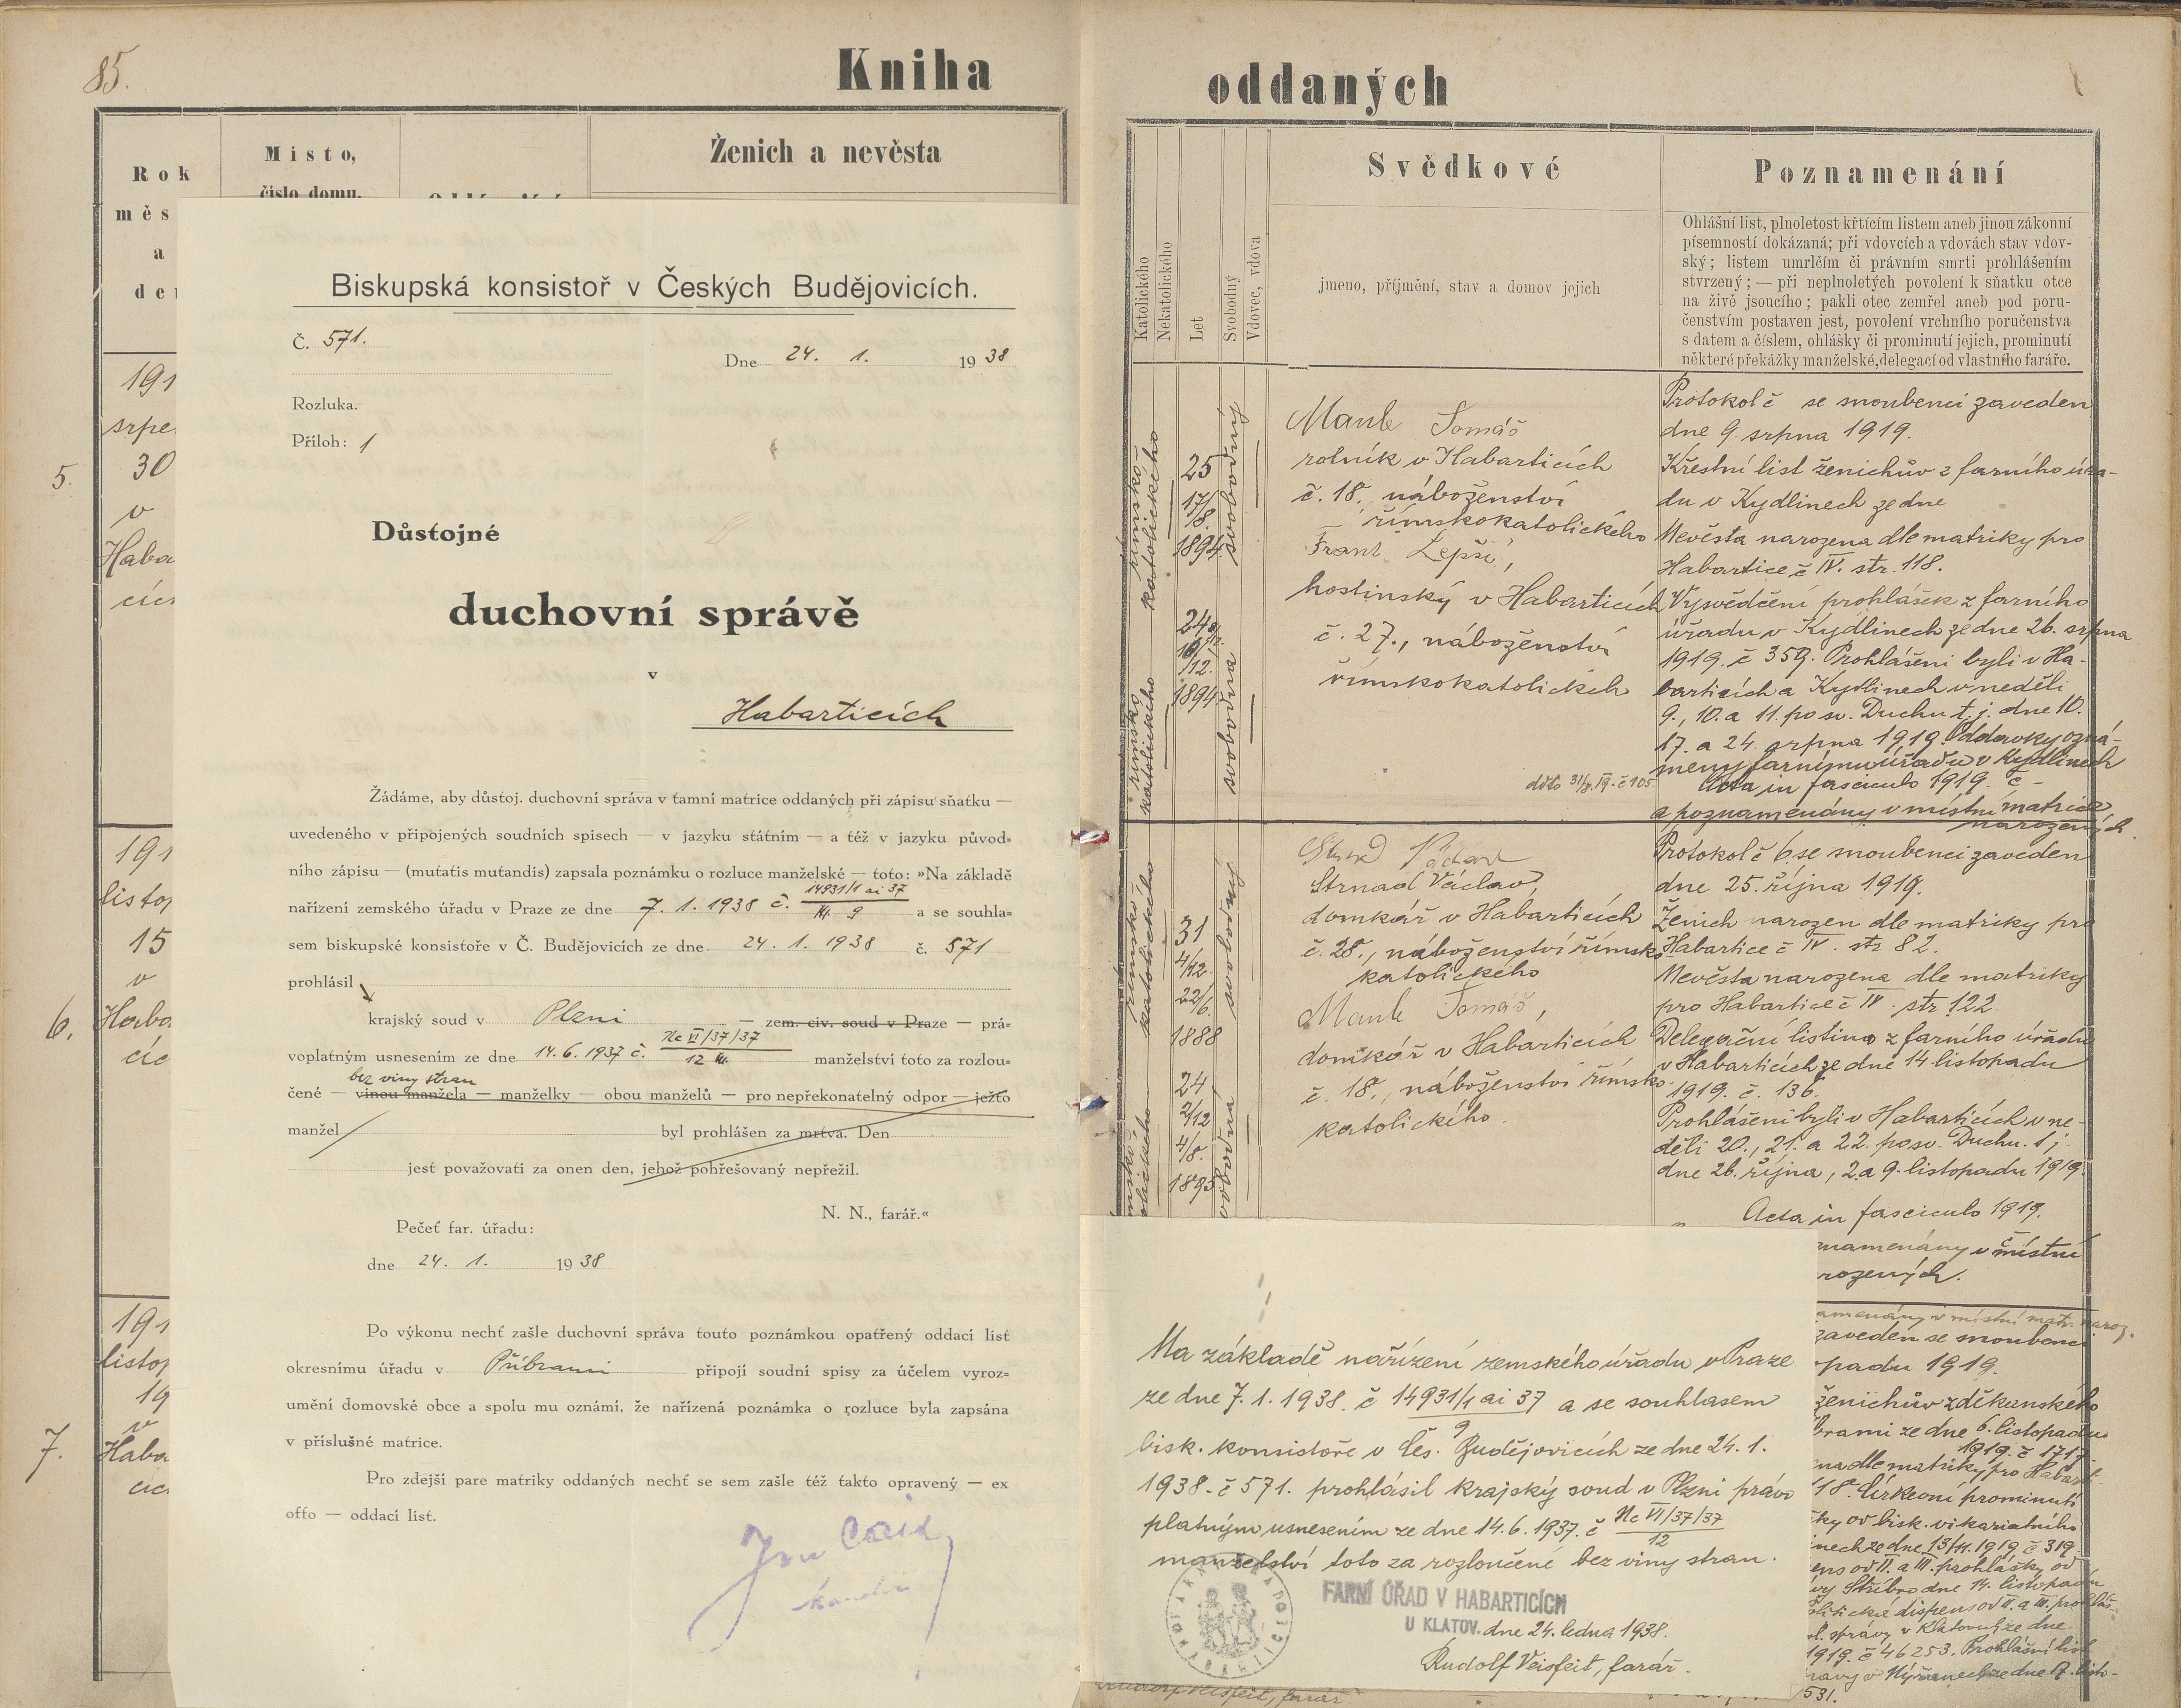 85.
Kniha
oddaných
Rok
měs
a
de
Místo,
číslo domu.
Ženich a nevěsta
191
srpe
5. 30
v
Haba
cíc
191
listop
15
v
6. Haba
cíc
191
listop
19
v
7. Haba
cíc
Biskupská konsistoř v Českých Budějovicích.
Č. 571.
Dne 24. 1. 1938
Rozluka.
Příloh: 1
Důstojné
duchovní správě
v
Habarticích
Žádáme, aby důstoj. duchovní správa v tamní matrice oddaných při zápisu sňatku —
uvedeného v připojených soudních spisech — v jazyku státním — a též v jazyku původ=
ního zápisu — (mutatis mutandis) zapsala poznámku o rozluce manželské — toto: »Na základě
nařízení zemského úřadu v Praze ze dne 7. 1. 1938 č. 14931/1 ai 37 / 9 a se souhla=
sem biskupské konsistoře v Č. Budějovicích ze dne 24. 1. 1938 č. 571
prohlásil
krajský soud v Plzni — zem. civ. soud v Praze — prá=
voplatným usnesením ze dne 14. 6. 1937 č. Nc VI/37/37 / 12 manželství toto za rozlou=
bez viny stran
čené — vinou manžela — manželky — obou manželů — pro nepřekonatelný odpor — ježto
manžel byl prohlášen za mrtva. Den
jest považovati za onen den, jehož pohřešovaný nepřežil.
N. N., farář.«
Pečeť far. úřadu:
dne 24. 1. 1938
Po výkonu nechť zašle duchovní správa touto poznámkou opatřený oddací list
okresnímu úřadu v Příbrami připojí soudní spisy za účelem vyroz=
umění domovské obce a spolu mu oznámí, že nařízená poznámka o rozluce byla zapsána
v příslušné matrice.
Pro zdejší pare matriky oddaných nechť se sem zašle též takto opravený — ex
offo — oddací list.
Katolického
Nekatolického
Let
Svobodný
Vdovec, vdova
Svědkové
jmeno, příjmění, stav a domov jejich
Poznamenání
Ohlášní list, plnoletost křtícím listem aneb jinou zákonní
písemností dokázaná; při vdovcích a vdovách stav vdov-
ský; listem umrlčím či právním smrti prohlášením
stvrzený; — při neplnoletých povolení k sňatku otce
na živě jsoucího; pakli otec zemřel aneb pod poru-
čenstvím postaven jest, povolení vrchního poručenstva
s datem a číslem, ohlášky či prominutí jejich, prominutí
některé překážky manželské, delegací od vlastního faráře.
římsko
katolického
25
17/8.
1894
svobodný
římsko
katolického
24
1894
svobodna
Maule Tomáš
rolník v Habarticích
č. 18., náboženství
římskokatolického
Frant. Lepší,
hostinský v Habarticích
č. 27., náboženství
římskokatolickéh
Protokol č se snoubenci zaveden
dne 9. srpna 1919.
Křestní list ženichův z farního úřa-
du v Kydlinech ze dne
Nevěsta narozena dle matriky pro
Habartice č IV. str. 118.
Vysvědčení prohlášek z farního
úřadu v Kydlinech ze dne 26. srpna
1919. č 359. Prohlášeni byli v Ha-
barticích a Kydlinech v neděli
9., 10. a 11. po sv. Duchu t. j. dne 10.
17. a 24. srpna 1919. Oddavky ozná-
meny farnímu úřadu v Kydlinech
Acta in fasciculo 1919. č –
a poznamenány v místní matrice
narozených.
římsko
katolického
31
4/12
22/6.
1888
svobodný
24
2/12
4/8.
1895
svobodna
Strnad Václav,
domkář v Habarticích
č. 28., náboženství římsko
katolického
Maule Tomáš,
domkář v Habarticích
č. 18., náboženství římsko
katolického.
Protokol č 6. se snoubenci zaveden
dne 25. října 1919.
Ženich narozen dle matriky pro
Habartice č IV. str 82.
Nevěsta narozena dle matriky
pro Habartice č IV. str. 122
Delegační listina z farního úřadu
v Habarticích ze dne 14. listopadu
1919. č. 136.
Prohlášeni byli v Habarticích v ne-
děli 20., 21. a 22. po sv. Duchu. t. j.
dne 26. října, 2. a 9. listopadu 1919.
Acta in fasciculo 1919.
namenány v místní
rozených.
amenány v místní matr. naroz.
zaveden se snoubenci
padu 1919.
ženichův z děkanského
brami ze dne 6. listopadu
1919. č 1717.
na dle matriky pro Habart
118. Církevní prominutí
ky od bisk. vikariatního
inech ze dne 13/11. 1919 č 319
ens od II. a III. prohlášky od
Stříbro dne 14. listopadu
litické dispens od II. a III. prohláš
ol. správy v Klatovech ze dne
1919. č 46253. Prohlášní list
ravy v Nýřanech ze dne 17. listo-
531.
Na základě nařízení zemského úřadu v Praze
ze dne 7. 1. 1938. č 14931/1 ai 37 / 9 a se souhlasem
bisk. konsistoře v Čes. Budějovicích ze dne 24. 1.
1938. č 571. prohlásil krajský soud v Plzni právo
platným usnesením ze dne 14. 6. 1937. č Nc VI/37/37 / 12
manželství toto za rozloučené bez viny stran.
FARNÍ ÚŘAD V HABARTICÍCH
U KLATOV. dne 24. ledna 1938.
Rudolf Veisfeit, farář.